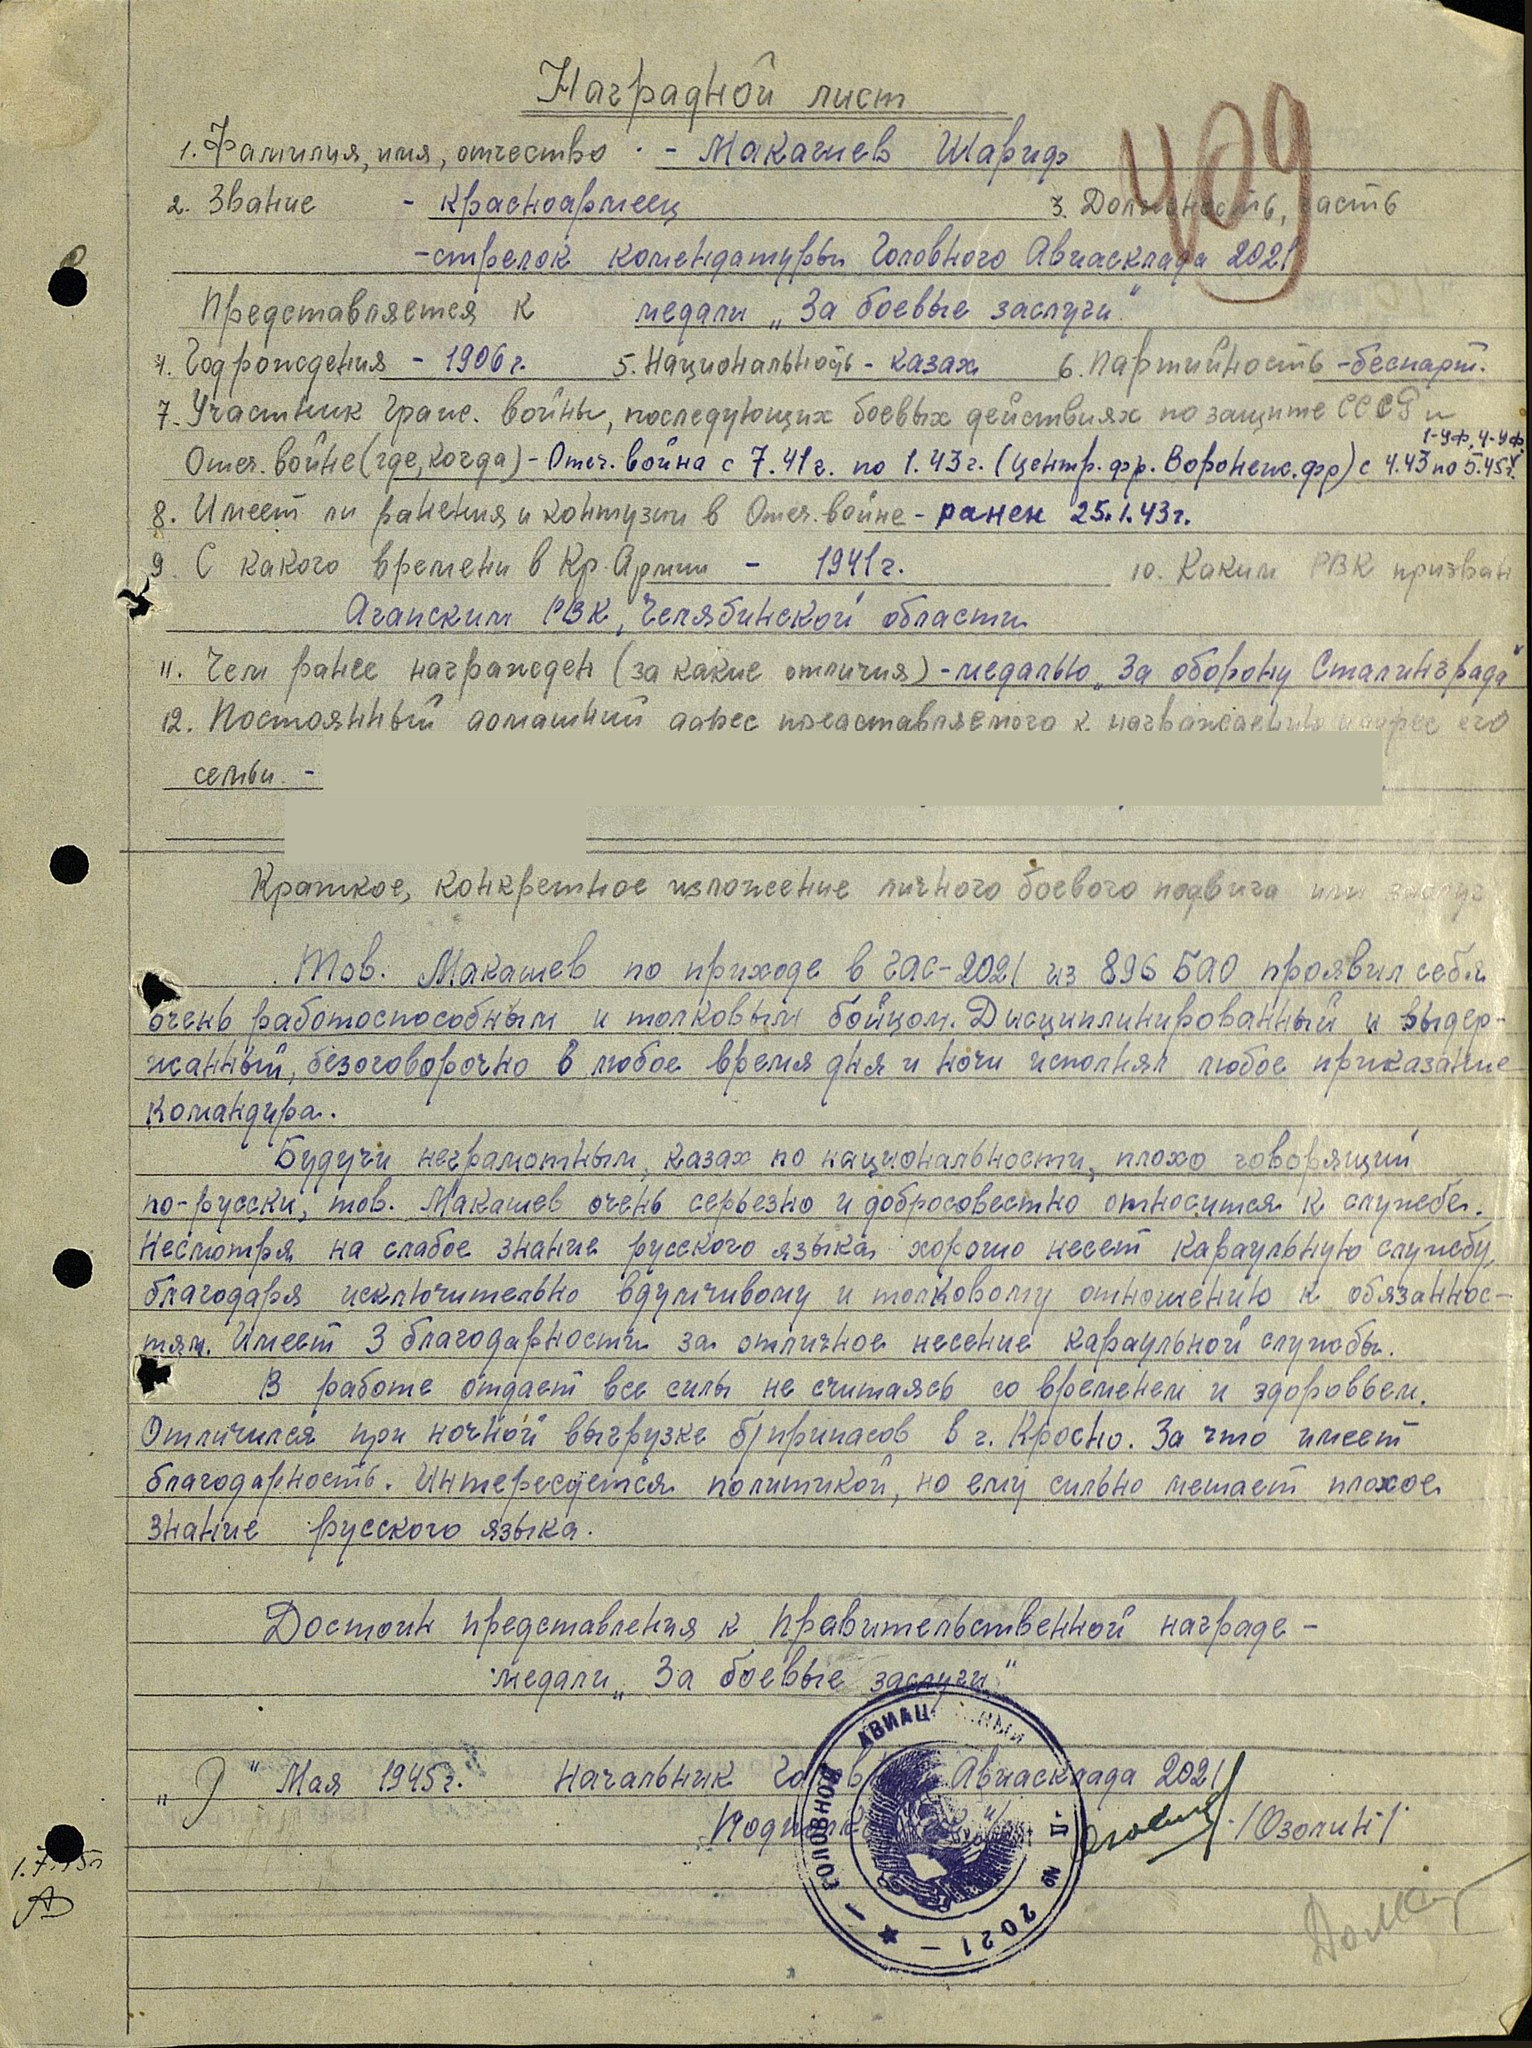 Наградной лист
409
1. Фамилия, имя, отчество - Макашев Шариф
2. Звание - красноармеец 3. Должность, часть
- стрелок комендатуры Головного Авиасклада 2021
Представляется к медали „За боевые заслуги"
4. Год рождения - 1906 г. 5. Национальность - казах 6. Партийность - беспарт.
7. Участник гражд. войны, последующих боевых действиях по защите СССР и
1-Уф, 4-Уф
Отеч. войне (где, когда) - Отеч. война с 7.41 г. по 1.43 г. (центр. фр. Воронеж. фр) с 4.43 по 5.45 г.
8. Имеет ли ранения и контузии в Отеч. войне - ранен 25.1.43 г.
9. С какого времени в Кр. Армии - 1941 г. 10. Каким РВК призван
РВК, Челябинской области
11. Чем ранее награжден (за какие отличия) - медалью „За оборону Сталинграда"
12. Постоянный домашний адрес представляемого к награждению и адрес его
семьи -
Краткое, конкретное изложение личного боевого подвига или заслуг
Тов. Макашев по приходе в ГАС-2021 из 896 БАО проявил себя
очень работоспособным и толковым бойцом. Дисциплинированный и выдер-
жанный, безоговорочно в любое время дня и ночи исполнял любое приказание
командира.
Будучи неграмотным, казах по национальности, плохо говорящий
по-русски, тов. Макашев очень серьезно и добросовестно относится к службе.
Несмотря на слабое знание русского языка хорошо несет караульную службу,
благодаря исключительно вдумчивому и толковому отношению к обязаннос-
тям. Имеет 3 благодарности за отличное несение караульной службы.
В работе отдает все силы не считаясь со временем и здоровьем.
Отличился при ночной выгрузке б/припасов в г. Кросно. За что имеет
благодарность. Интересуется политикой, но ему сильно мешает плохое
знание русского языка.
Достоин представления к правительственной награде -
медали „За боевые заслуги"
„9" Мая 1945 г. Начальник Голов Авиасклада 2021
Подполк /Озолин/
ГОЛОВНОЙ АВИАЦ НЫЙ № 2021
1.7.45г